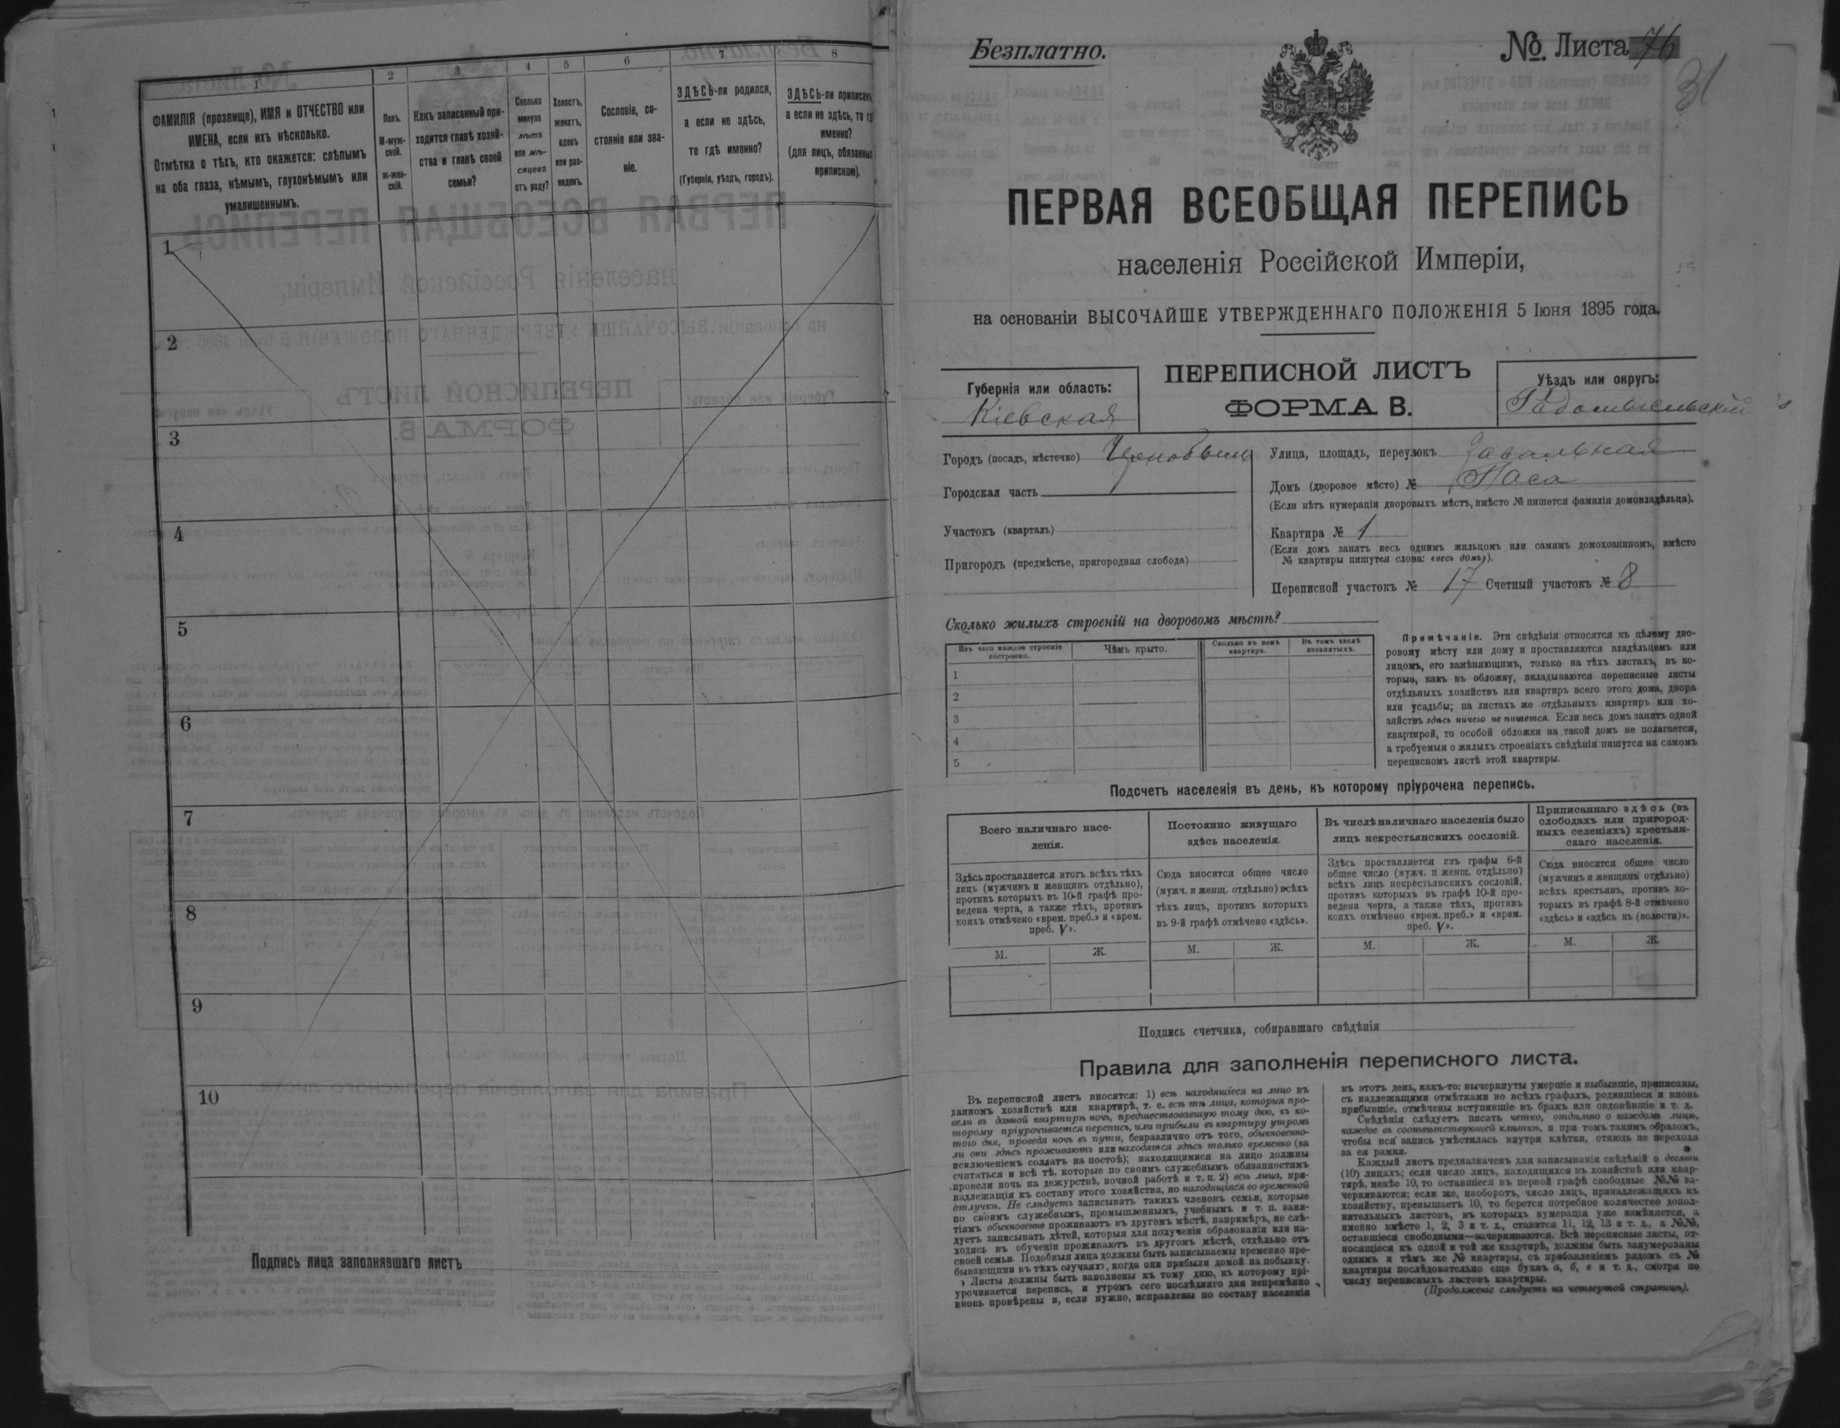 1
2
3
4
5
6
7
8
ФАМИЛІЯ (прозвище), ИМЯ и ОТЧЕСТВО или
ИМЕНА, если ихъ нѣсколько.
Отмѣтка о тѣхъ, кто окажется: слѣпымъ
на оба глаза, нѣмымъ, глухонѣмымъ или
умалишеннымъ.
Полъ.
М-муж-
ской.
ж-жен-
скій.
Какъ записанный при-
ходится главѣ хозяй-
ства и главѣ своей
семьи?
Сколько
минуло
лѣтъ
или мѣ-
сяцевъ
отъ роду?
Холостъ,
женатъ,
вдовъ
или раз-
веденъ.
Сословіе, со-
стояніе или зва-
ніе.
ЗДѢСЬ-ли родился,
а если не здѣсь,
то гдѣ именно?
(Губернія, уѣздъ, городъ).
ЗДѢСЬ-ли приписанъ
а если не здѣсь, то гдѣ
именно?
(для лицъ, обязанныхъ
припискою).
1
2
3
4
5
6
7
8
9
10
Подпись лица заполнявшаго листъ
Безплатно.
№ Листа 76
31
ПЕРВАЯ ВСЕОБЩАЯ ПЕРЕПИСЬ
населенія Россійской Имперіи,
на основаніи ВЫСОЧАЙШЕ УТВЕРЖДЕННАГО ПОЛОЖЕНІЯ 5 Іюня 1895 года.
Губернія или область:
Кіевская
ПЕРЕПИСНОЙ ЛИСТЪ
ФОРМА В.
Уѣздъ или округъ:
Радомысльскій
Городъ (посадъ, мѣстечко)
Городская часть
Участокъ (кварталъ)
Пригородъ (предмѣстье, пригородная слобода)
Улица, площадь, переулокъ
Домъ (дворовое мѣсто) №
(Если нѣтъ нумераціи дворовыхъ мѣстъ, вмѣсто № пишется фамилія домовладѣльца).
Квартира № 1
(Если домъ занятъ весь однимъ жильцомъ или самимъ домохозяиномъ, вмѣсто
№ квартиры пишутся слова: «весь домъ»).
Переписной участокъ № 17 Счетный участокъ № 8
Сколько жилыхъ строеній на дворовомъ мѣстѣ?
Изъ чего каждое строеніе
построено.
Чѣмъ крыто.
Сколько въ немъ
квартиръ.
Въ томъ числѣ
незанятыхъ.
1
2
3
4
5
Примѣчаніе. Эти свѣдѣнія относятся къ цѣлому дво-
ровому мѣсту или дому и проставляются владѣльцемъ или
лицомъ, его замѣняющимъ, только на тѣхъ листахъ, въ ко-
торые, какъ въ обложку, вкладываются переписные листы
отдѣльныхъ хозяйствъ или квартиръ всего этого дома, двора
или усадьбы; на листахъ же отдѣльныхъ квартиръ или хо-
зяйствъ здѣсь ничего не пишется. Если весь домъ занятъ одной
квартирой, то особой обложки на такой домъ не полагается,
а требуемыя о жилыхъ строеніяхъ свѣдѣнія пишутся на самомъ
переписномъ листѣ этой квартиры.
Подсчетъ населенія въ день, къ которому пріурочена перепись.
Всего наличнаго насе-
ленія.
Здѣсь проставляется итогъ всѣхъ тѣхъ
лицъ (мужчинъ и женщинъ отдѣльно),
противъ которыхъ въ 10-й графѣ про-
ведена черта, а также тѣхъ, противъ
коихъ отмѣчено «врем. преб.» и «врем.
преб. V».
М.
Ж.
Постоянно живущаго
здѣсь населенія.
Сюда вносится общее число
(мужч. и женщ. отдѣльно) всѣхъ
тѣхъ лицъ, противъ которыхъ
въ 9-й графѣ отмѣчено «здѣсь».
М.
Ж.
Въ числѣ наличнаго населенія было
лицъ некрестьянскихъ сословій.
Здѣсь проставляется изъ графы 6-й
общее число (мужч. и женщ. отдѣльно)
всѣхъ лицъ некрестьянскихъ сословій,
противъ которыхъ въ графѣ 10-й про-
ведена черта, а также тѣхъ, противъ
коихъ отмѣчено «врем. преб.» и «врем.
преб. V».
М.
Ж.
Приписаннаго здѣсь (въ
слободахъ или пригород-
ныхъ селеніяхъ) крестьян-
скаго населенія.
Сюда вносится общее число
(мужчинъ и женщинъ отдѣльно)
всѣхъ крестьянъ, противъ ко-
торыхъ въ графѣ 8-й отмѣчено
«здѣсь» и «здѣсь къ (волости)».
М.
Ж.
Подпись счетчика, собиравшаго свѣдѣнія
Правила для заполненія переписного листа.
Въ переписной листъ вносятся: 1) всѣ находящіеся на лицо въ
данномъ хозяйствѣ или квартирѣ, т. е. всѣ тѣ лица, которыя про-
вели въ данной квартирѣ ночь, предшествовавшую тому дню, къ ко-
торому пріурочивается перепись, или прибыли въ квартиру утромъ
того дня, проведя ночь въ пути, безразлично отъ того, обыкновенно-
ли они здѣсь проживаютъ или находятся здѣсь только временно (за
исключеніемъ солдатъ на постоѣ); находящимися на лицо должны
считаться и всѣ тѣ, которые по своимъ служебнымъ обязанностямъ
провели ночь на дежурствѣ, ночной работѣ и т. п. 2) всѣ лица, при-
надлежащія къ составу этого хозяйства, но находящіяся во временной
отлучкѣ. Не слѣдуетъ записывать такихъ членовъ семьи, которые
по своимъ служебнымъ, промышленнымъ, учебнымъ и т. п. заня-
тіямъ обыкновенно проживаютъ въ другомъ мѣстѣ, напримѣръ, не слѣ-
дуетъ записывать дѣтей, которыя для полученія образованія или на-
ходясь въ обученіи проживаютъ въ другомъ мѣстѣ, отдѣльно отъ
своей семьи. Подобныя лица должны быть записываемы временно пре-
бывающими въ тѣхъ случаяхъ, когда они прибыли домой на побывку.
Листы должны быть заполнены къ тому дню, къ которому прі-
урочивается перепись, и утромъ сего послѣдняго дня непремѣнно
вновь провѣрены и, если нужно, исправлены по составу населенія
въ этотъ день, какъ-то: вычеркнуты умершіе и выбывшіе, приписаны,
съ надлежащими отмѣтками во всѣхъ графахъ, родившіеся и вновь
прибывшіе, отмѣчены вступившіе въ бракъ или овдовѣвшіе и т. д.
Свѣдѣнія слѣдуетъ писать четко, отдѣльно о каждомъ лицѣ,
каждое въ соотвѣтствующей клѣткѣ, и при томъ такимъ образомъ,
чтобы вся запись умѣстилась внутри клѣтки, отнюдь не переходя
за ея рамки.
Каждый листъ предназначенъ для записыванія свѣдѣній о десяти
(10) лицахъ; если число лицъ, находящихся въ хозяйствѣ или квар-
тирѣ, менѣе 10, то оставшіеся въ первой графѣ свободные №№ за-
черкиваются; если же, наоборотъ, число лицъ, принадлежащихъ къ
хозяйству, превышаетъ 10, то берется потребное количество допол-
нительныхъ листовъ, въ которыхъ нумерація уже измѣняется, а
именно вмѣсто 1, 2, 3 и т. д., ставится 11, 12, 13 и т. д., а №№,
оставшіеся свободными—зачеркиваются. Всѣ переписные листы, от-
носящіеся къ одной и той же квартирѣ, должны быть занумерованы
однимъ и тѣмъ же № квартиры, съ прибавленіемъ рядомъ съ №
квартиры послѣдовательно еще буквъ а, б, в и т. д., смотря по
числу переписныхъ листовъ квартиры.
(Продолженіе слѣдуетъ на четвертой страницѣ).